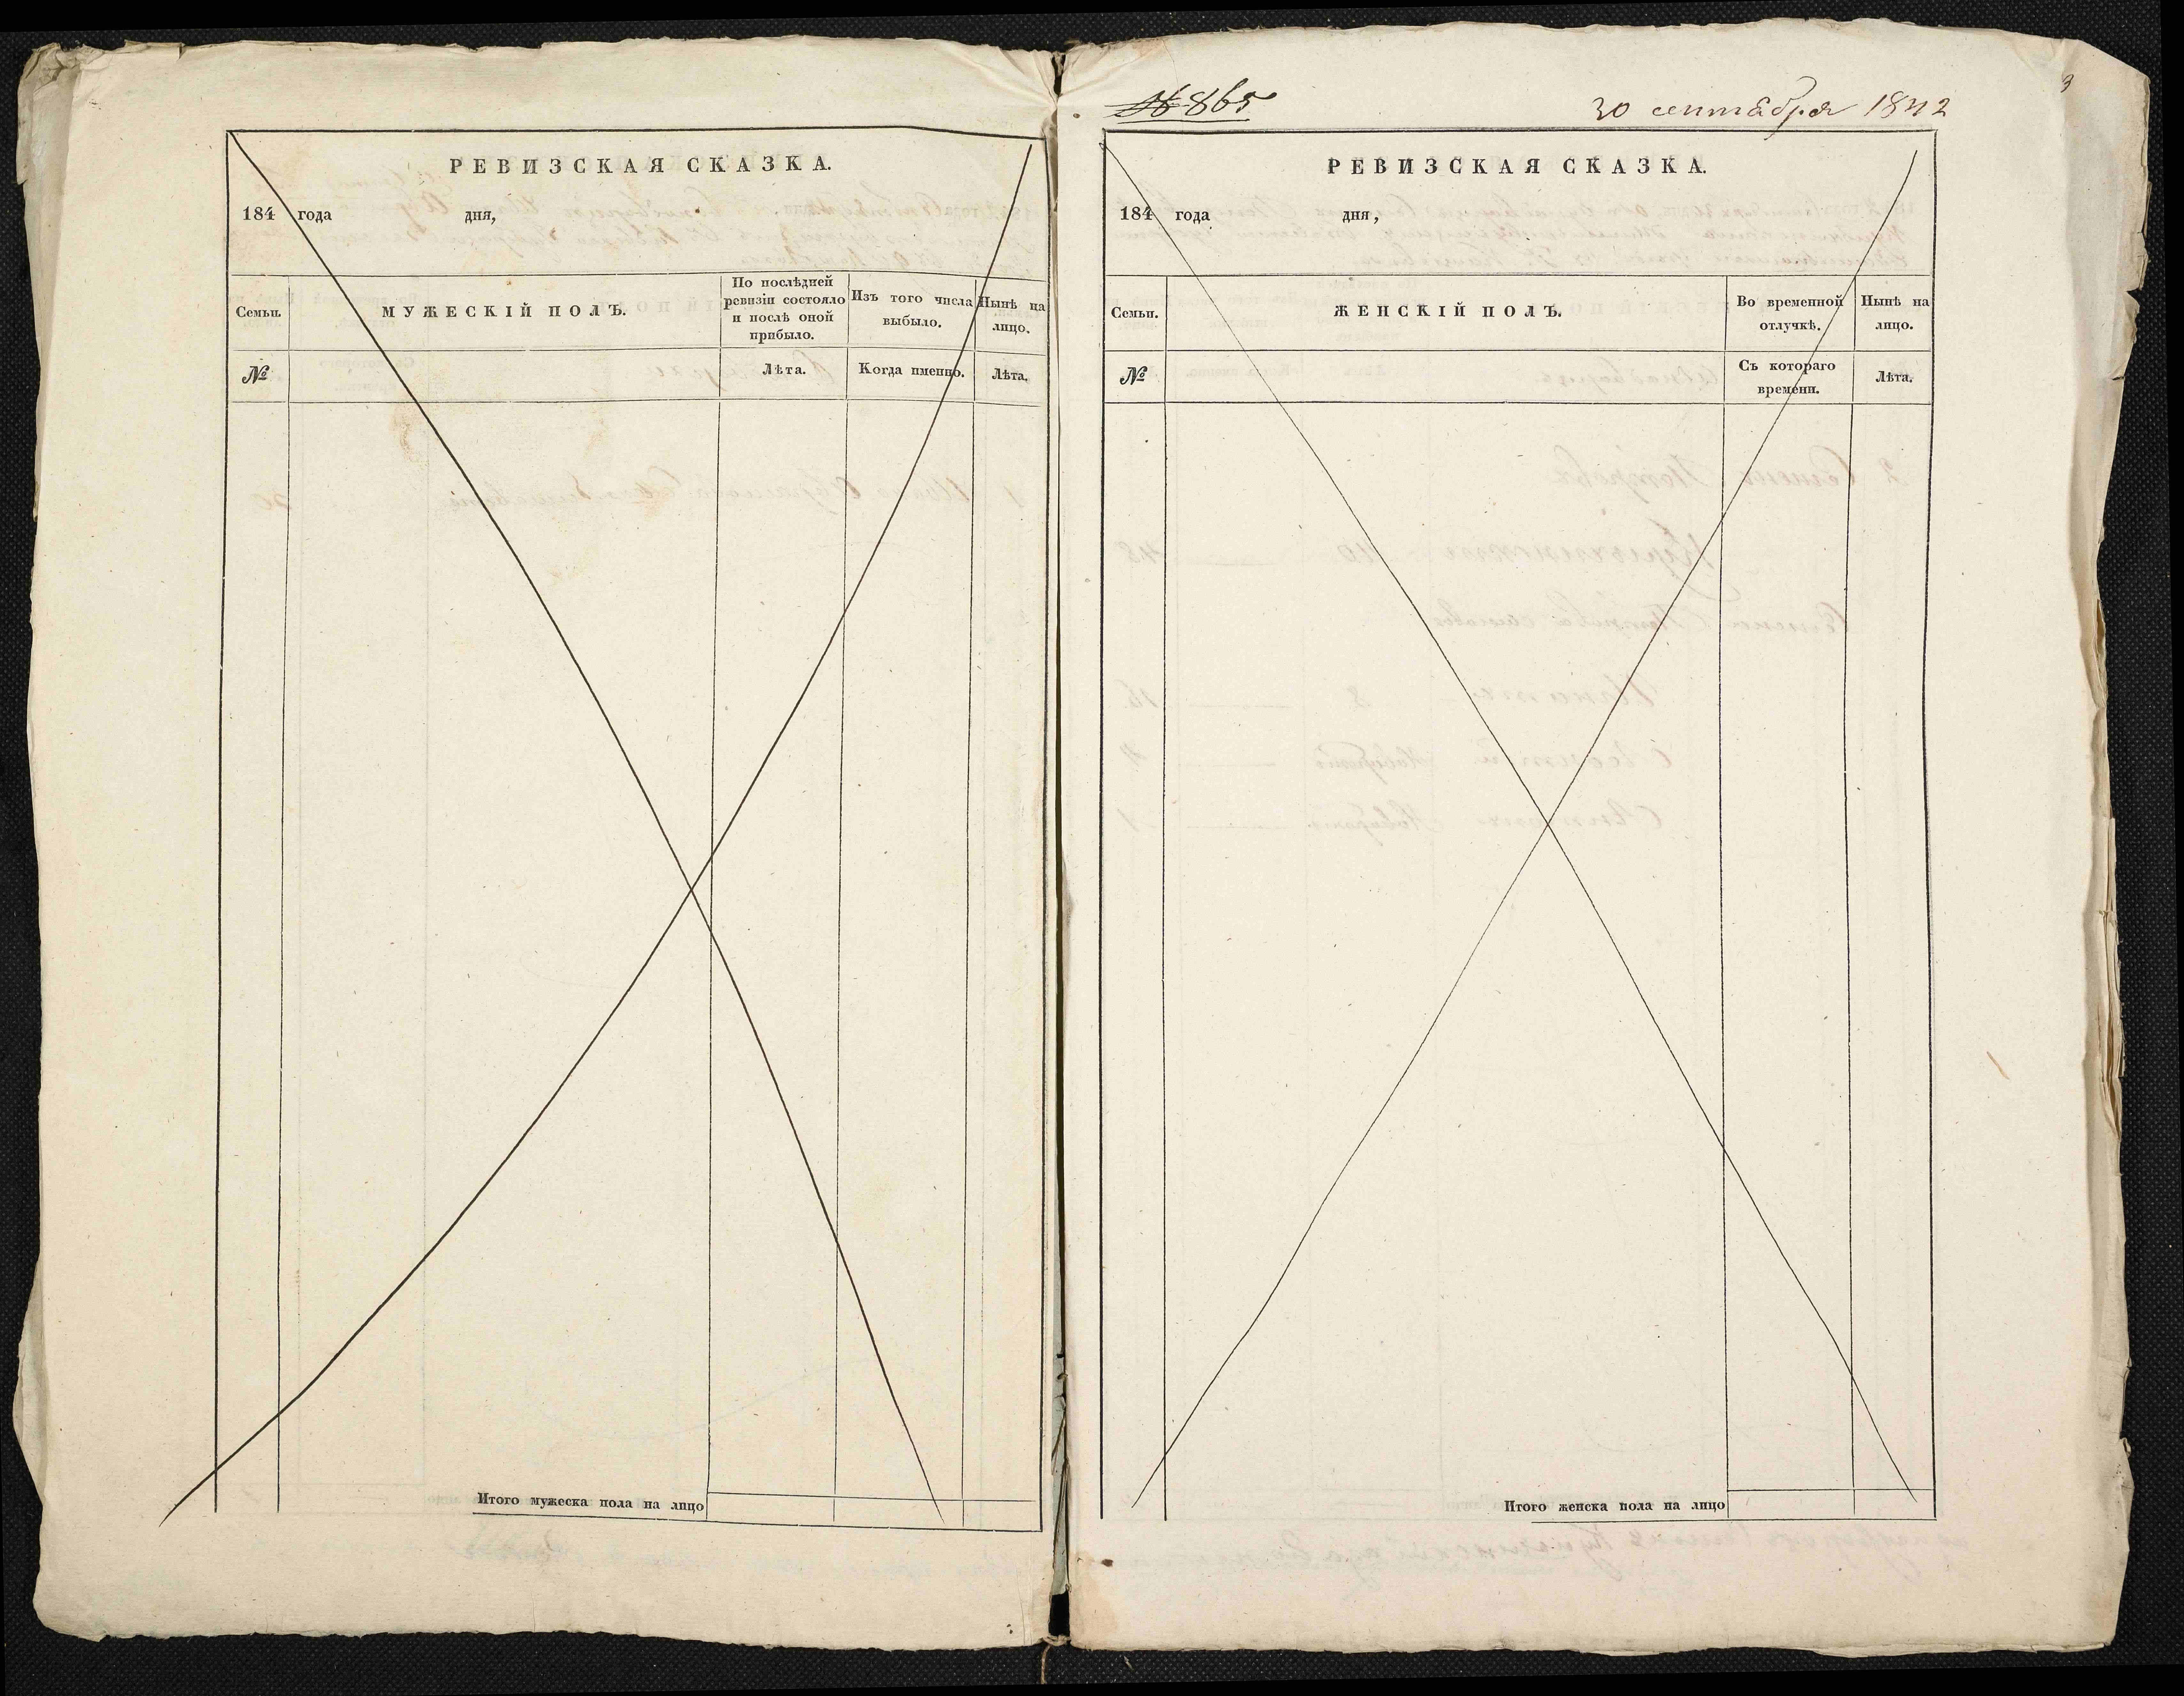 РЕВИЗСКАЯ СКАЗКА.
184 года дня,
Семьи.
МУЖЕСКІЙ ПОЛЪ.
По послѣдней
ревизіи состояло
и послѣ оной
прибыло.
Изъ того числа
выбыло.
Нынѣ на
лицо.
№
Лѣта.
Когда именно.
Лѣта.
Итого мужеска пола на лицо
№ 865
30 сентября 1842
3
РЕВИЗСКАЯ СКАЗКА.
184 года дня,
Семьи.
ЖЕНСКІЙ ПОЛЪ.
Во временной
отлучкѣ.
Нынѣ на
лицо.
№
Съ котораго
времени.
Лѣта.
Итого женска пола на лицо